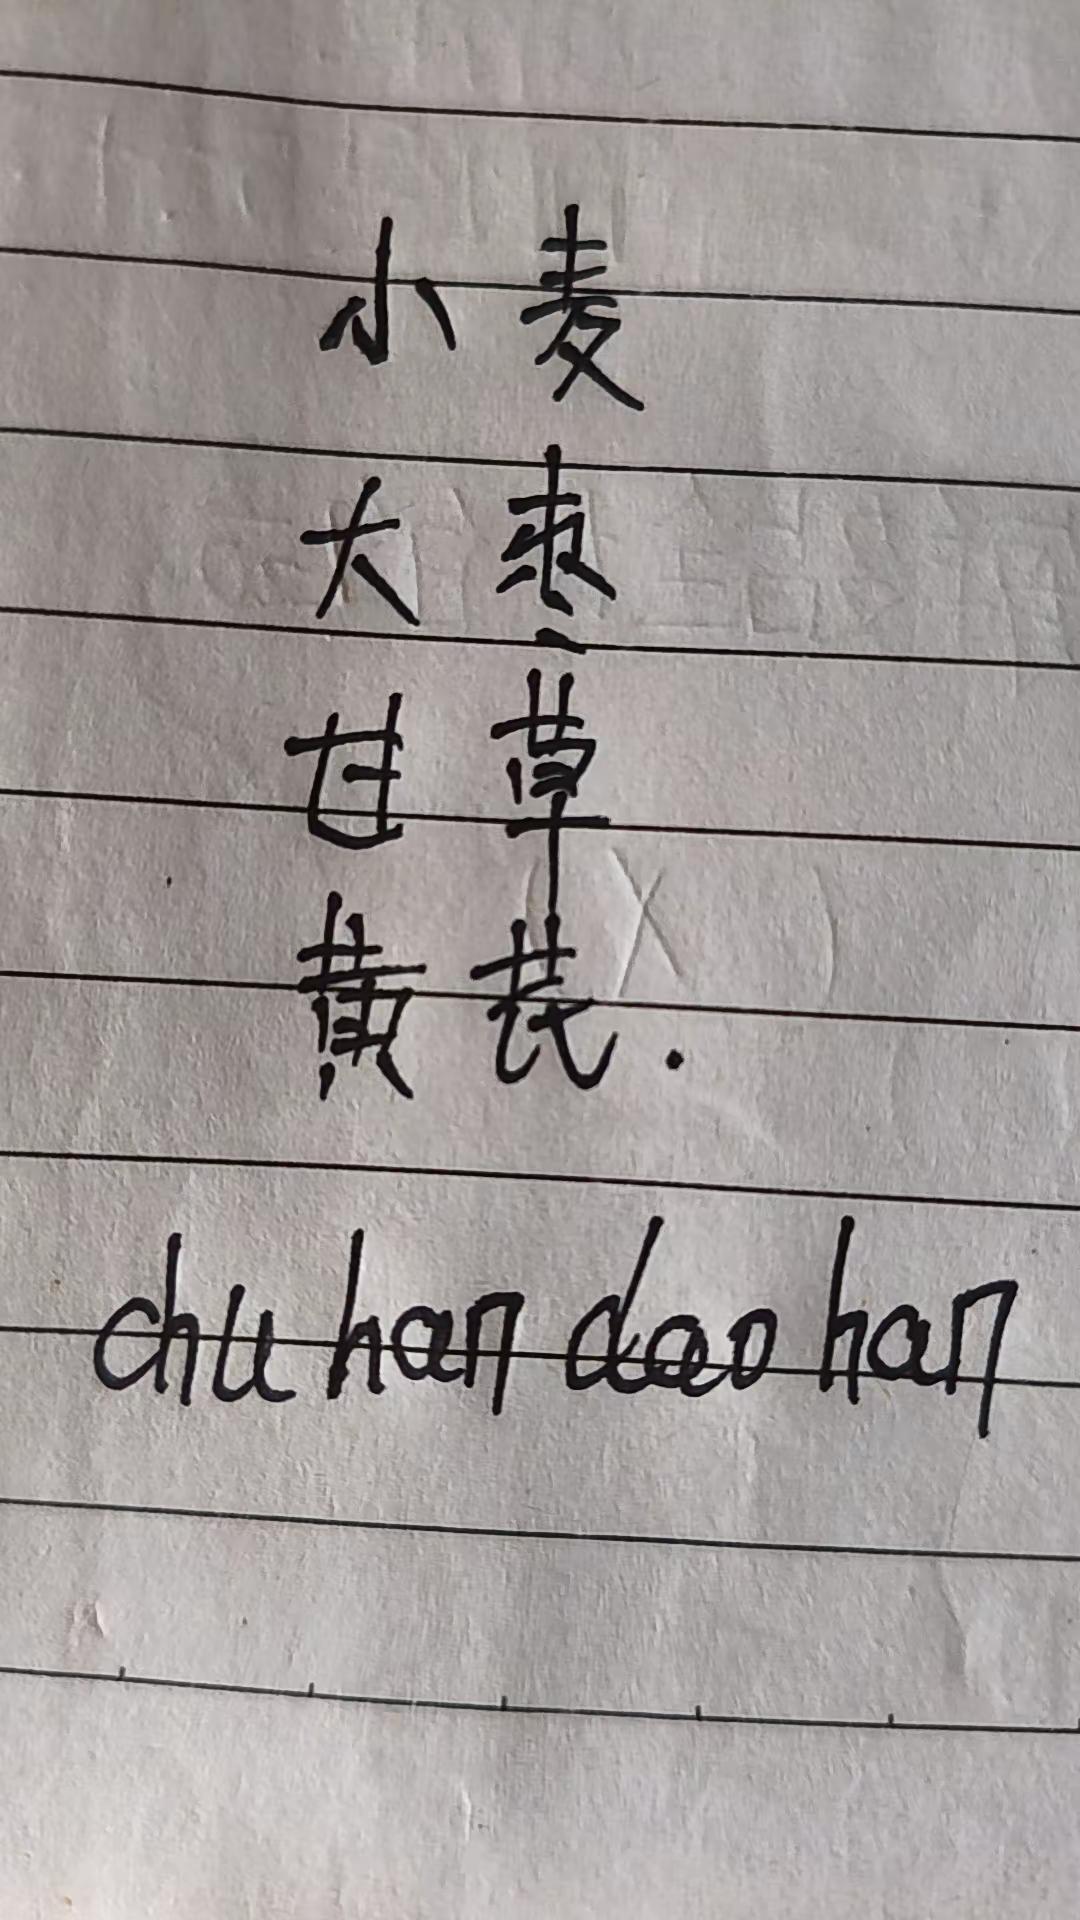 小麦
大枣
甘草
黄芪.
chu han dao han